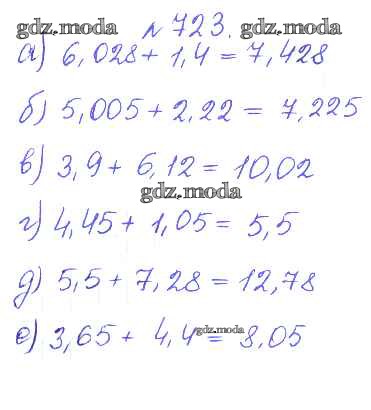 gdz.moda № 723. gdz.moda
а) 6,028 + 1,4 = 7,428
б) 5,005 + 2,22 = 7,225
в) 3,9 + 6,12 = 10,02
gdz.moda
г) 4,45 + 1,05 = 5,5
д) 5,5 + 7,28 = 12,78
е) 3,65 + 4,4 gdz.moda = 8,05